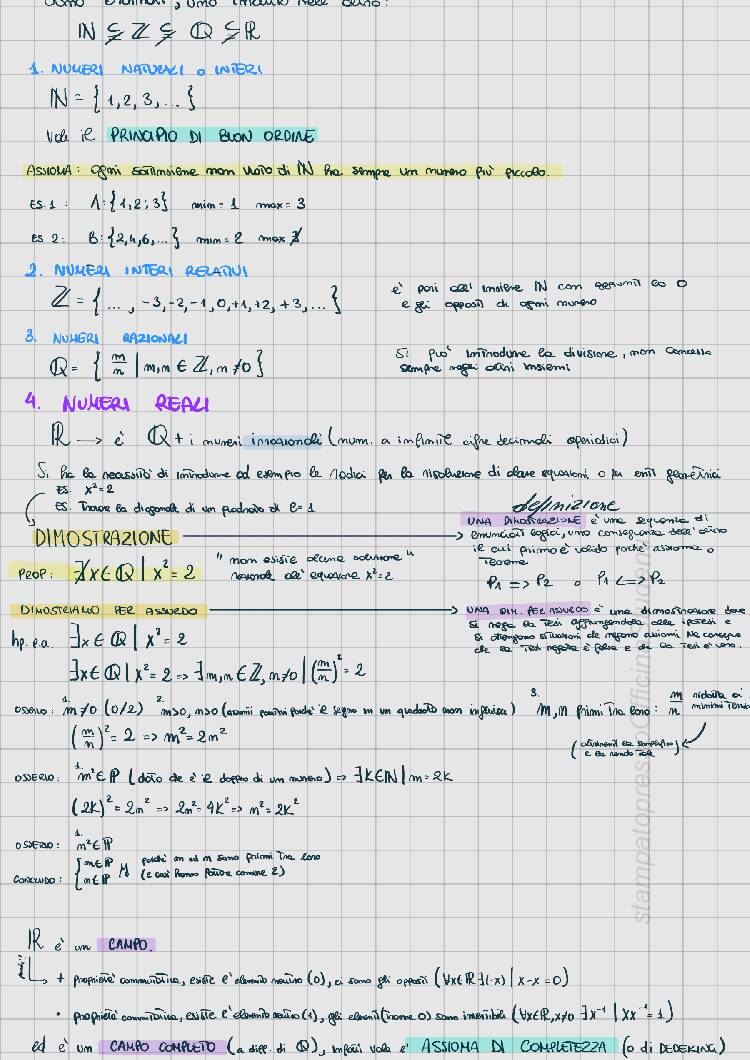 sono ordinati, uno incluso nell'altro:
ℕ ⊊ ℤ ⊊ ℚ ⊊ ℝ
1. NUMERI NATURALI o INTERI
ℕ = { 1, 2, 3, ... }
Vale il PRINCIPIO DI BUON ORDINE
ASSIOMA: ogni sottoinsieme non vuoto di ℕ ha sempre un numero più piccolo.
ES. 1: A: {1, 2; 3} min = 1 max = 3
ES 2: B: {2, 4, 6, ...} min = 2 max ∄
2. NUMERI INTERI RELATIVI
ℤ = { ..., -3, -2, -1, 0, +1, +2, +3, ... }
è pari all'insieme ℕ con aggiunti lo 0
e gli opposti di ogni numero
3. NUMERI RAZIONALI
ℚ = { m/n | m,n ∈ ℤ, n ≠ 0 }
Si può introdurre la divisione, non concessa
sempre negli altri insiemi
4. NUMERI REALI
ℝ → è ℚ + i numeri irrazionali (num. a infinite cifre decimali aperiodici)
Si ha la necessità di introdurre ad esempio le radici per la risoluzione di alcune equazioni o per enti geometrici
ES. x² = 2
ES. Trovare la diagonale di un quadrato di l = 1
DIMOSTRAZIONE
definizione
UNA DIMOSTRAZIONE è una sequenza di
enunciati logici, uno conseguenza dell'altro
il cui primo è valido perché assioma o
teorema
P₁ => P₂ o P₁ <=> P₂
PROP: ∄x ∈ ℚ | x² = 2
"non esiste alcuna soluzione"
razionale all'equazione x² = 2
DIMOSTRIAMO PER ASSURDO
UNA DIM. PER ASSURDO è una dimostrazione dove
si nega la tesi aggiungendola alle ipotesi e
si ottengono situazioni che negano assiomi. Ne consegue
che la tesi negata è falsa e che la tesi è vera.
hp. p.a. ∃x ∈ ℚ | x² = 2
∃x ∈ ℚ | x² = 2 => ∃ m,n ∈ ℤ, n ≠ 0 | (m/n)² = 2
OSSERVO: 1. m ≠ 0 (0/2) 2. m>0, n>0 (assumii positivi perché il segno in un quadrato non influisce) 3. m, n primi tra loro: m/n ridotta ai minimi termini
(altrimenti la semplifico
e la rendo tale)
(m/n)² = 2 => m² = 2n²
OSSERVO: 1. m² ∈ ℙ (dato che è il doppio di un numero) => ∃ K ∈ ℕ | m = 2K
(2K)² = 2n² => 2n² = 4K² => n² = 2K²
OSSERVO: 1. n² ∈ ℙ
CONCLUDO: { m ∈ ℙ
n ∈ ℙ
poiché m ed n sono primi tra loro
(e così hanno fattore comune 2)
ℝ è un CAMPO.
+ proprietà commutativa, esiste l'elemento neutro (0), ci sono gli opposti (∀x∈ℝ ∃(-x) | x-x = 0)
· proprietà commutativa, esiste l'elemento neutro (1), gli elementi (tranne 0) sono invertibili (∀x∈ℝ, x≠0 ∃ x⁻¹ | xx⁻¹ = 1)
ed è un CAMPO COMPLETO (a diff. di ℚ), infatti vale l'ASSIOMA DI COMPLETEZZA (o di DEDEKIND)